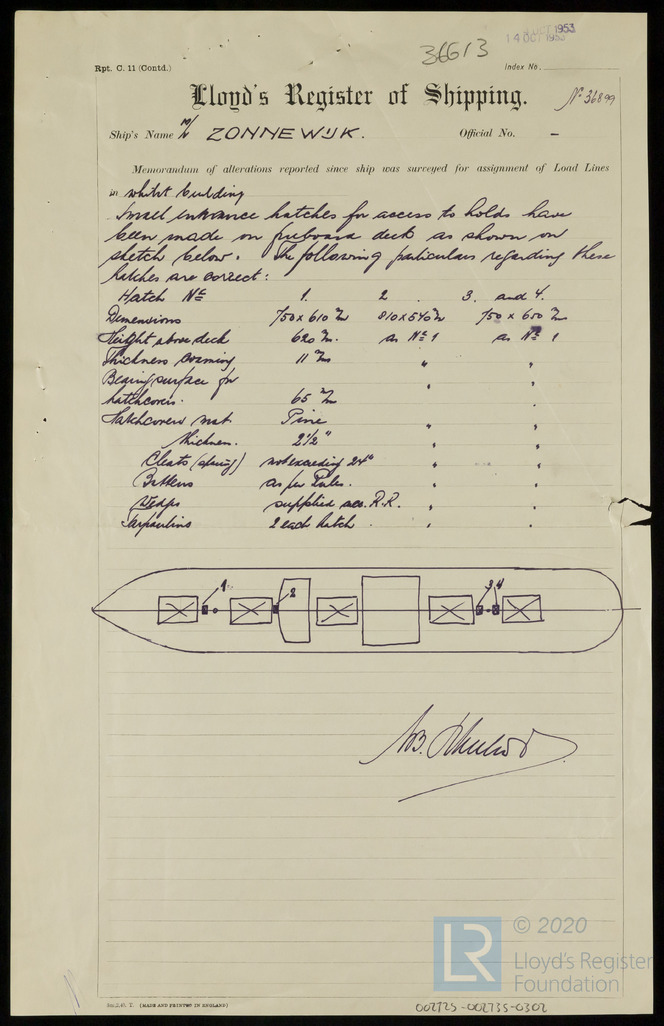 14 OCT 1953
36613
Rpt. C. 11 (Contd.)
Index No.
Lloyd's Register of Shipping.
No 36899
Ship's Name M/V ZONNEWIJK.
Official No. –
Memorandum of alterations reported since ship was surveyed for assignment of Load Lines
in whilst building
Small entrance hatches for access to holds have
been made on freeboard deck as shown on
sketch below. The following particulars regarding these
hatches are correct:
Hatch No 1. 2. 3. and 4.
Dimensions 750 x 610 m/m 810 x 540 m/m 750 x 600 m/m
Height above deck 620 m/m. as No 1 as No 1
Thickness coaming 11 m/m " "
Bearing surface for " "
hatchcovers. 65 m/m
Hatchcovers mat. Pine " "
thickness. 2½" " "
Cleats (spacing) not exceeding 24" " "
Battens as per Rules. " "
Wedges supplied acc. R.R. " "
Tarpaulins 2 each hatch. " "
1 2 3 4
© 2020
LR
Lloyd's Register
Foundation
(MADE AND PRINTED IN ENGLAND)
002725-002735-0302